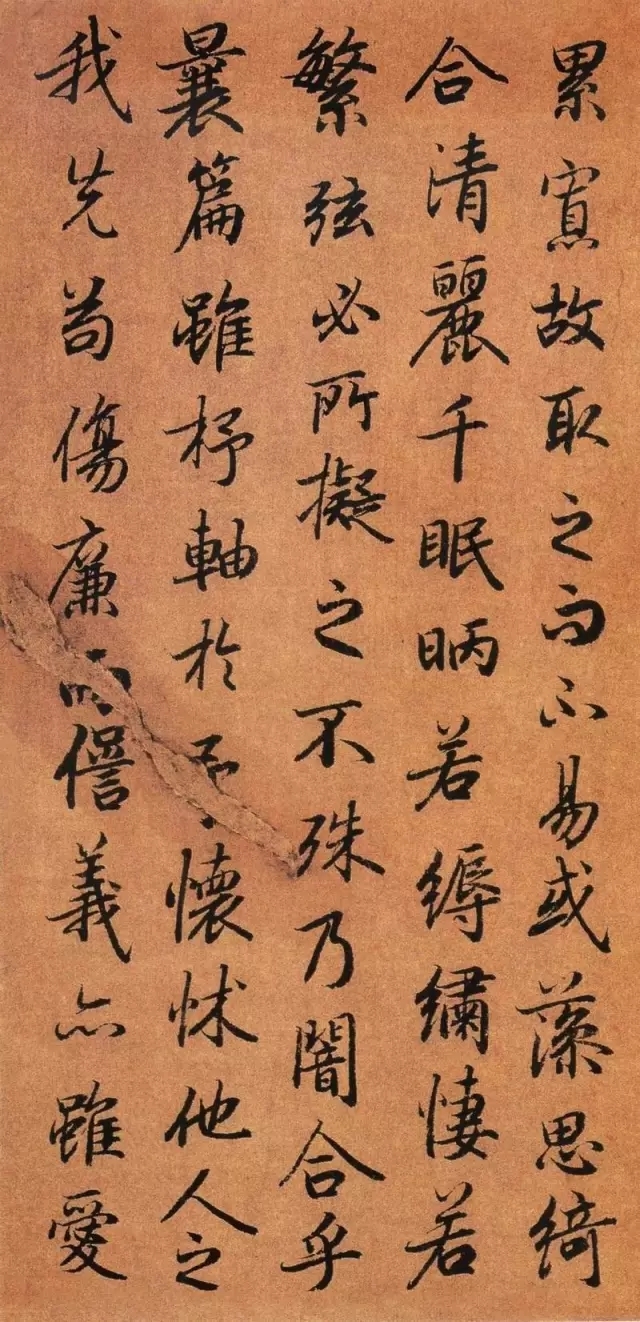 累寡故取之而不易或藻思綺
合清麗千眠昞若縟繡悽若
繁弦必所擬之不殊乃闇合乎
曩篇雖杼軸於予懷怵他人之
我先苟傷廉而𠎝義亦雖愛